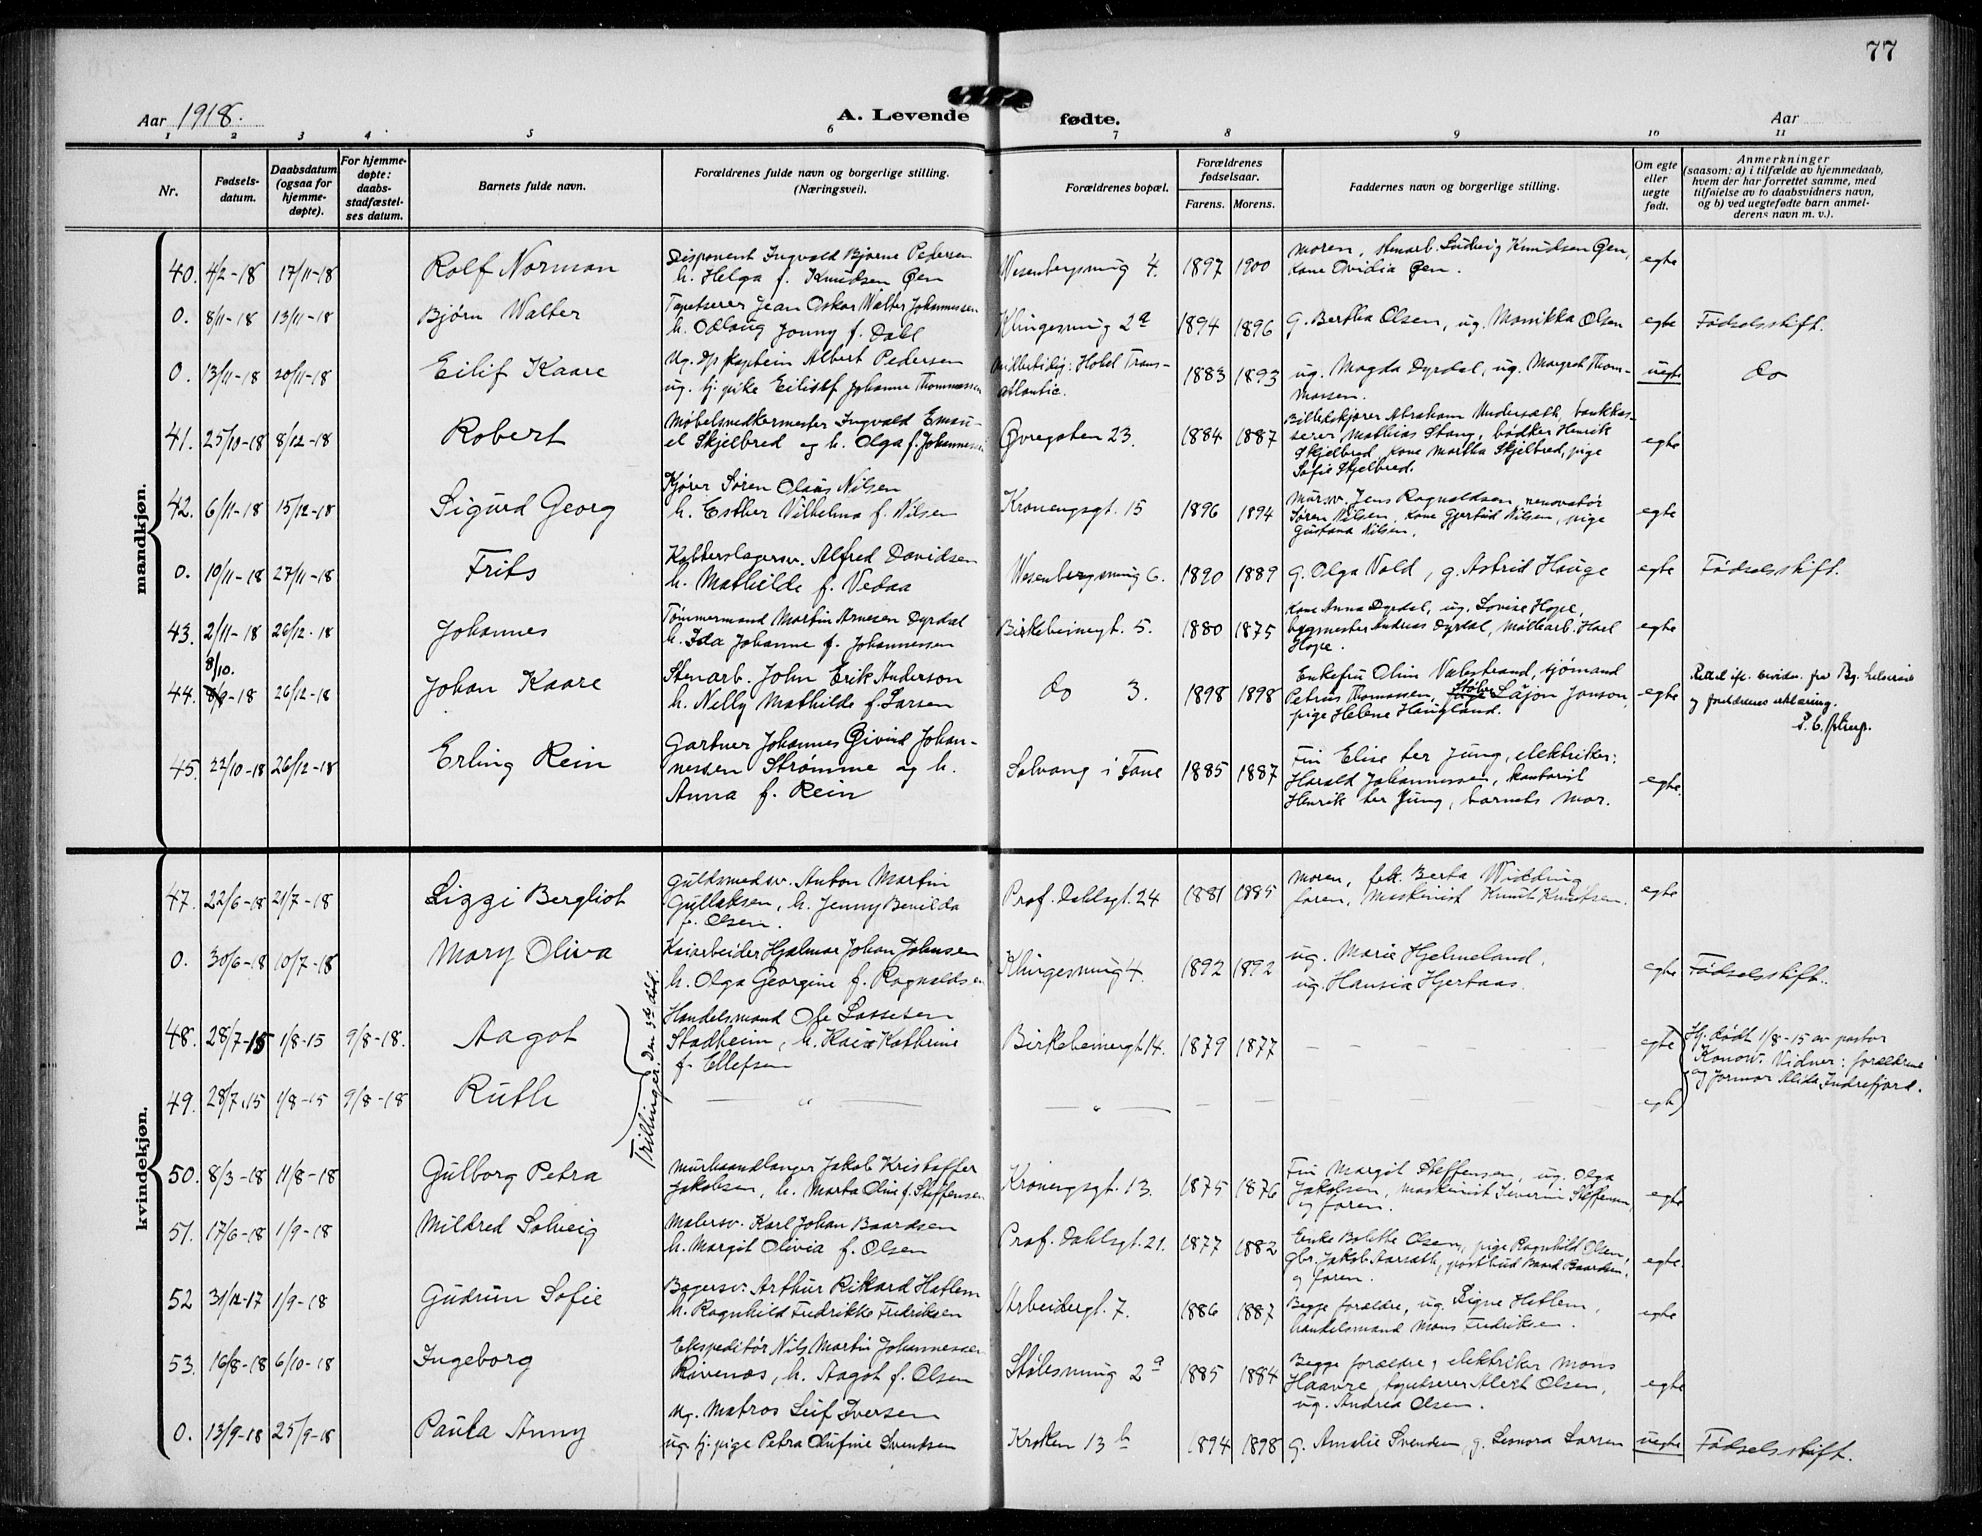 77
Aar 1918.
A. Levende fødte.
Aar
1 2 3 4 5 6 7 8 9 10 11
Nr.
Fødsels-
datum.
Daabsdatum
(ogsaa for
hjemme-
døpte).
For hjemme-
døpte:
daabs-
stadfæstel-
ses datum.
Barnets fulde navn.
Forældrenes fulde navn og borgerlige stilling.
(Næringsvei).
Forældrenes bopæl.
Forældrenes
fødselsaar.
Farens. Morens.
Faddernes navn og borgerlige stilling.
Om egte
eller
uegte
født.
Anmerkninger
(saasom: a) i tilfælde av hjemmedaab,
hvem der har forrettet samme, med
tilføielse av to daabsvidners navn,
og b) ved uegtefødte barn anmel-
derens navn m. v.).
mandkjøn.
40. 4/2-18 17/11-18 Rolf Norman
Disponent Ingvald Bjarne Pedersen
h. Helga f. Knudsen Øen
Wesenbergsmug 4. 1897 1900
Moren, stenarb. Ludvig Knudsen Øen,
kone Ovidia Øen.
egte
0. 8/11-18 13/11-18 Bjørn Walter
Tapetserer Jean Oskar Walter Johannessen
h. Odlaug Jonny f. Dall
Klingesmug 2a 1894 1896
G. Bertha Olsen, ug. Monikka Olsen
egte Fødselsstift.
0. 13/11-18 20/11-18 Eilif Kaare
Ug. Dpskaptein Albert Pedersen
ug. tj. pike Eilistf Johanne Thommassen
Midlertidig: Hotel Trans-
atlantic.
1883 1893
ug. Magda Dyrdal, ug. Margret Thom-
massen.
uegte do
41. 25/10-18 8/12-18 Robert
Møbelsnedkermester Ingvald Emanu-
el Skjelbred og h. Olga f. Johannessen
Øvregaten 23. 1884 1887
Billetskjører Abraham Undersæth, bankkas-
serer Mathias Stang, bødker Henrik
Skjelbred, kone Martha Skjelbred, pige
Sofie Skjelbred.
egte
42. 6/11-18 15/12-18 Sigurd Georg
Kjører Søren Olaus Nilsen
h. Esther Vilhelma f. Nilsen
Kronengsgt. 15 1896 1894
Mursv. Jens Ragnaldsen, renovatør
Søren Nilsen, kone Gjertrud Nilsen, pige
Gustava Nilsen.
egte
0. 19/11-18 27/11-18 Frits
Kobberslagersv. Alfred Davidsen
h. Mathilde f. Vedaa
Wesenbergsmug 6. 1890 1889
G. Olga Vold, g. Astrid Hauge
egte Fødselsstift.
43. 2/11-18 26/12-18 Johannes
Tømmermand Martin Arnesen Dyrdal
h. Ida Johanne f. Johannessen
Birkebeinergt. 5. 1880 1875
Kone Anna Dyrdal, ug. Lovise Hope,
bygmester Andreas Dyrdal, møllearb. Karl
Hope.
egte
8/10.
44. 8/9-18 26/12-18 Johan Kaare
Stenarb. John Erik Anderson
h. Nelly Mathilde f. Larsen
do 3. 1898 1898
Enkefru Olini Valestrand, sjømand
Petrus Thomassen, pige Støber Låjon Jonson,
pige Helene Haugland.
egte
Rettet efter bevidn. fra Bg. helseraad
og forældrenes erklæring.
45. 22/10-18 26/12-18 Erling Rein
Gartner Johannes Øivind Johan-
nessen Strømme og h.
Anna f. Rein
Solvang i Fane 1885 1887
Fru Elise ter Jung, elektriker:
Harald Johannessen, kontorist
Henrik ter Jung, barnets mor.
egte.
kvindekjøn.
47. 22/6-18 21/7-18 Lizzi Bergliot
Guldsmedsv. Anton Martin
Gullaksen, h. Jenny Benilda
f. Olsen.
Prof. Dahlsgt. 24 1881 1885
Moren, frk. Berta Widding
faren, Maskinist Knut Knutsen.
egte
0. 30/6-18 10/7-18 Mary Oliva
Kaiarbeider Hjalmar Johan Johnsen
h. Olga Georgine f. Ragnaldsen
Klingesmug 4. 1892 1892
ug. Marie Hjelmeland.
ug. Hansia Hjertaas.
egte Fødselsstift.
48. 28/7-15 1/8-15 9/8-18. Aagot
Trillinger. Den 3die død.
Handelsmand Ole Lassesen
Stadheim, h. Kaia Kathrine
f. Ellefsen
Birkebeinergt. 14. 1879 1877
egte
Hj. døbt 1/8-15 av pastor
Konow. Vidner: forældrene
og jormor Alida Indrefjord.
49. 28/7.15 1/8-15 9/8-18 Ruth
— " — — " — egte
50. 8/3-18 11/8-18 Gulborg Petra
Murhaandlanger Jakob Kristoffer
Jakobsen, h. Marta Olini f. Steffensen
Kronengsgt. 13. 1875 1876
Fru Margit Steffensen, ug. Olga
Jakobsen, maskinist Severin Steffensen
og faren.
egte
51. 17/6-18 1/9-18 Mildred Solveig
Malersv. Karl Johan Baardsen
h. Margit Olivia f. Olsen
Prof. Dahlsgt. 21. 1877 1882
Enke Bolette Olsen, pige Ragnhild Olsen,
gbr. Jakob Aarsæth, postbud Baard Baardsen,
og faren.
egte.
52 31/12-17 1/9-18 Gudrun Sofie
Bagersv. Arthur Rikard Hatlem
h. Ragnhild Fredrikke Fredriksen
Arbeidergt. 7. 1886 1887
Begge forældre, ug. Signe Hatlem,
handelsmand Mons Fredriksen.
egte
53. 16/8-18 6/10-18 Ingeborg
Ekspeditør Nils Martin Johannessen
Rivenes, h. Aagot f. Olsen
Stølesmug 2a 1885 1884
Begge forældre, elektriker Mons
Haavre, tapetserer Alert Olsen,
ug. Andrea Olsen.
egte
0. 13/9-18 25/9-18 Paula Anny
Ug. Matros Leif Iversen
ug. tj. pige Petra Olufine Svendsen
Kroken 13b 1894 1898
G. Amalie Svendsen, g. Leonora Larsen
uegte Fødselsstift.